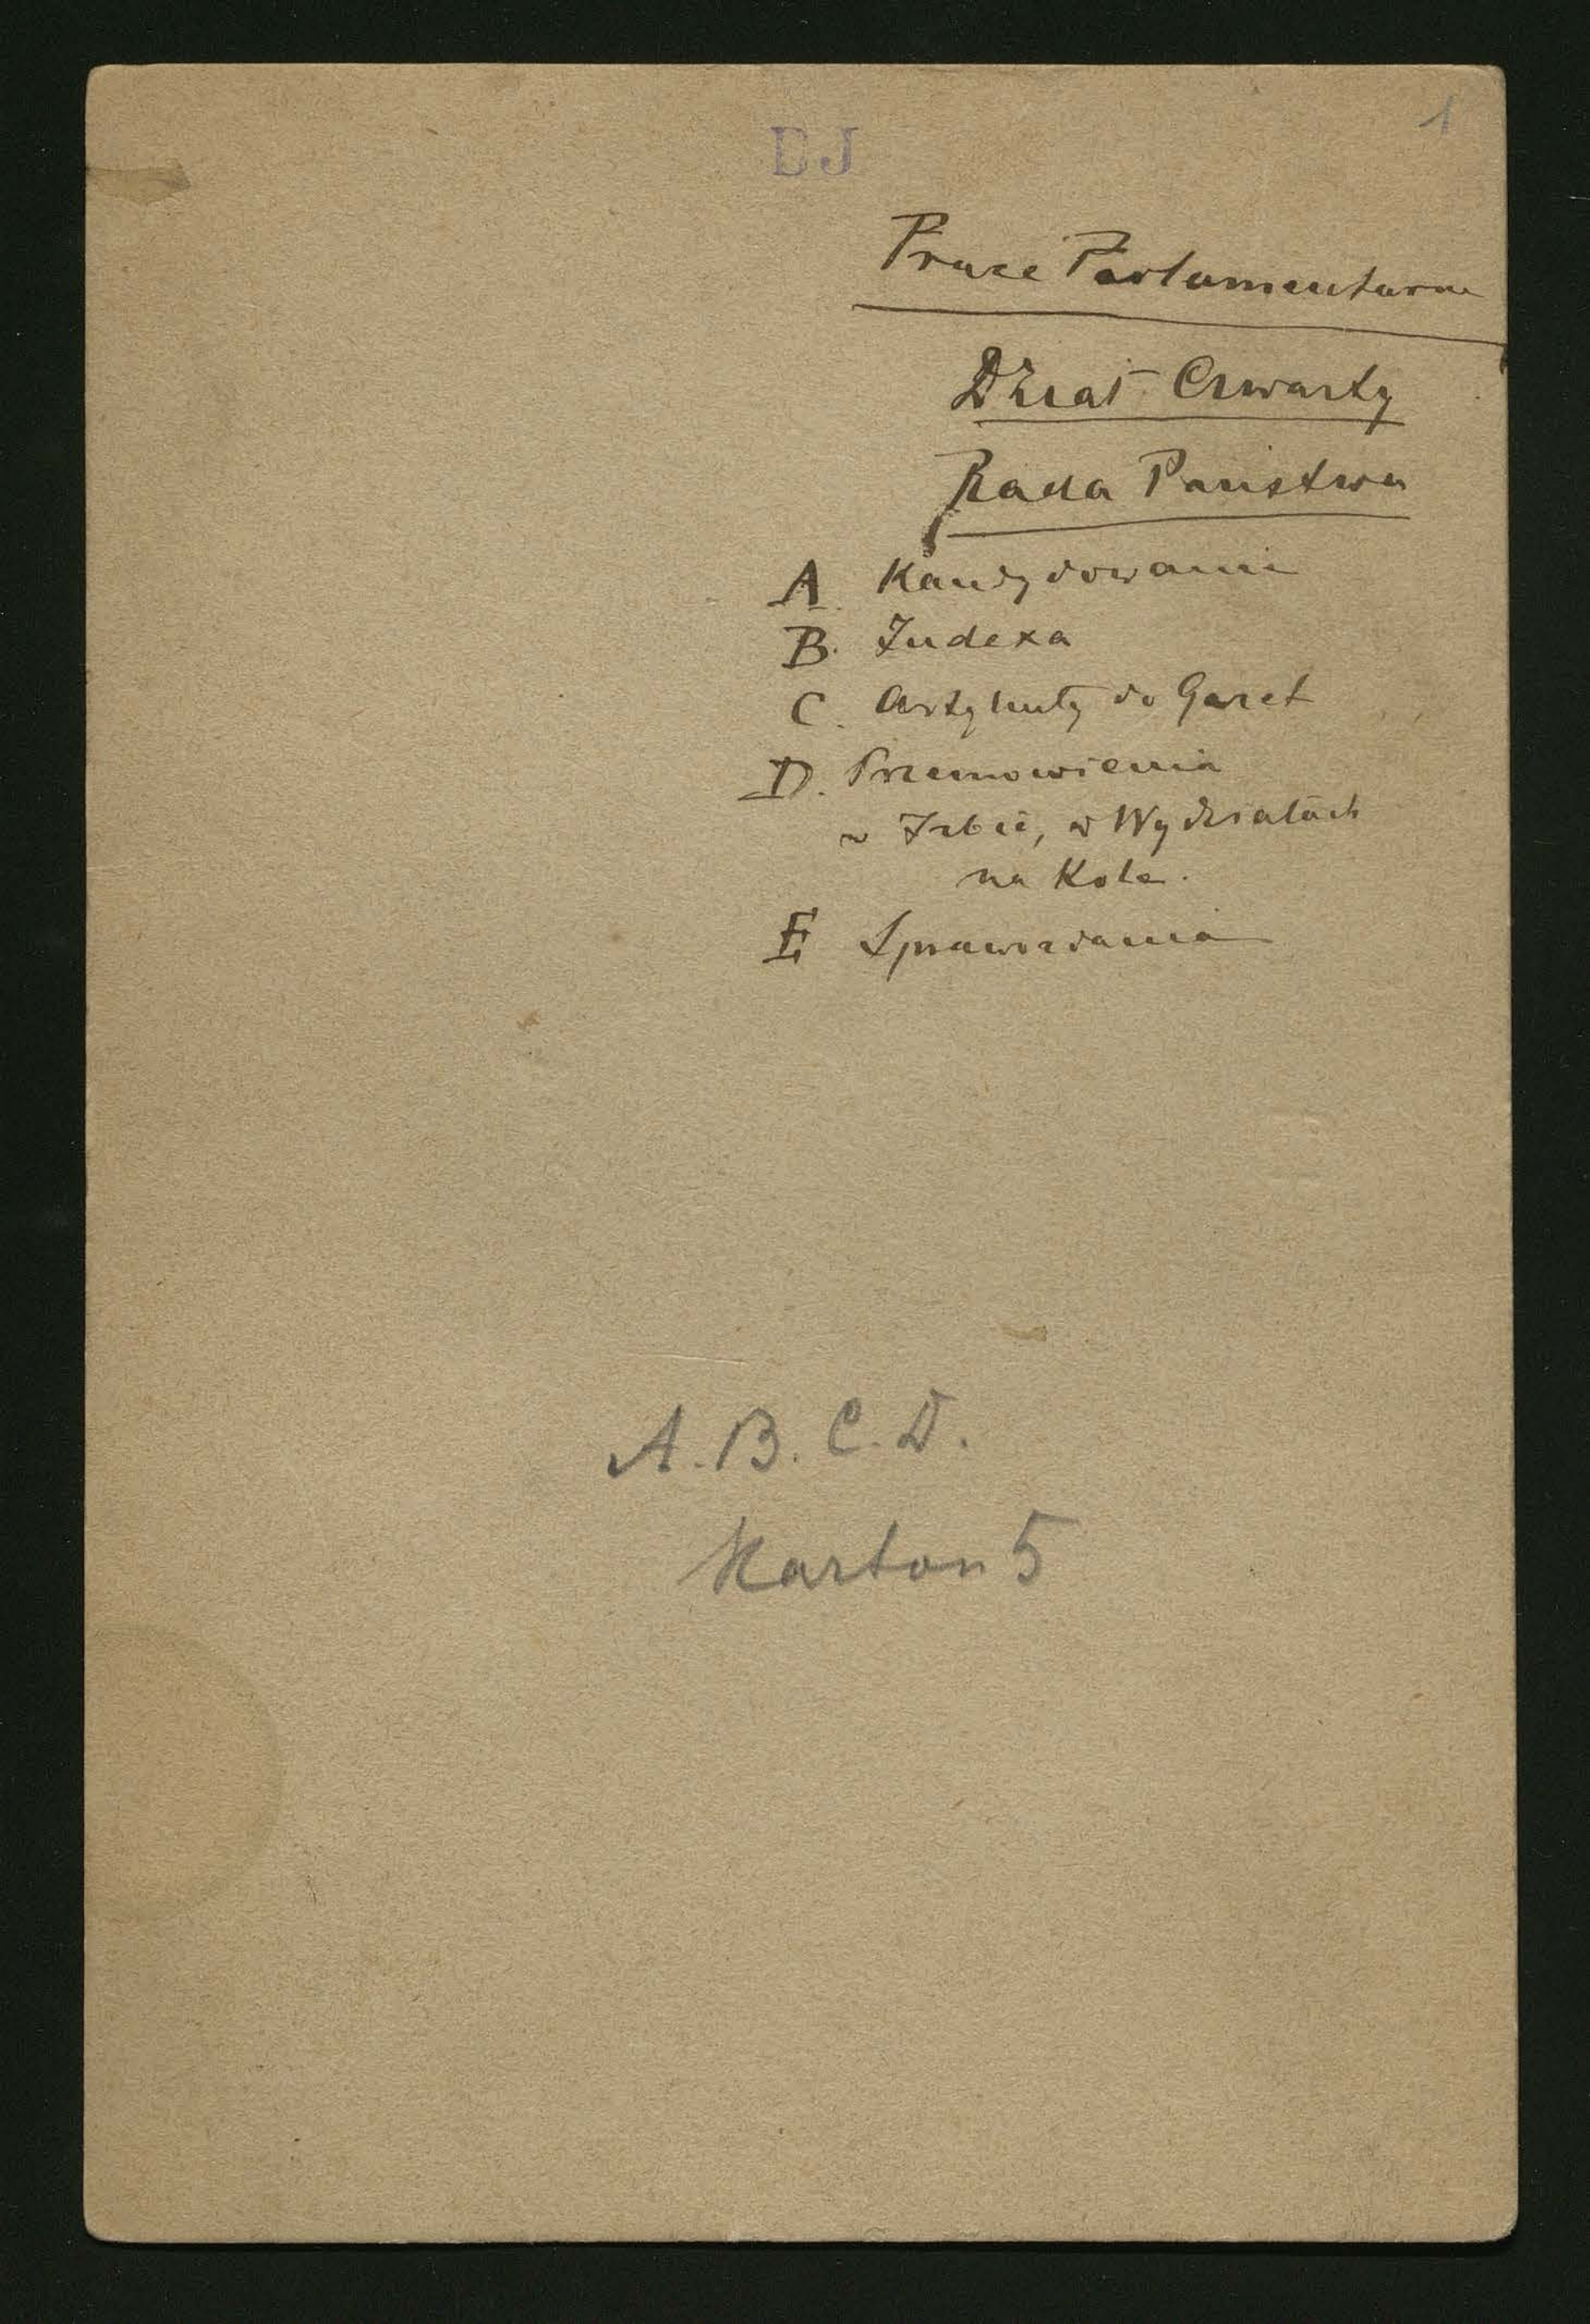 1
BJ
Prace Parlamentarne
Dział Czwarty
Rada Państwa
A Kandydowanie
B. Indexa
C. Artykuły do Gazet
D. Przemowienia
w Izbie, w Wydziałach
na Kole.
E Sprawozdania
A. B. C. D.
Karton 5